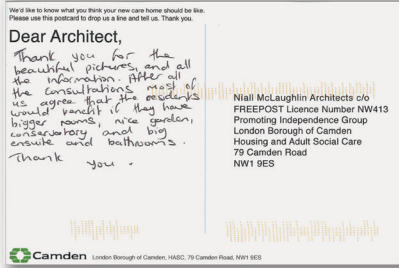 We'd like to know what you think your new care home should be like.
Please use this postcard to drop us a line and tell us. Thank you.
Dear Architect,
Thank you for the
beautiful pictures, and all
the information. After all
the consultations most of
us agree that the residents
would benefit if they have
bigger rooms, nice garden,
conservatory and big
ensuite and bathrooms.
Thank you.
Niall McLaughlin Architects c/o
FREEPOST Licence Number NW413
Promoting Independence Group
London Borough of Camden
Housing and Adult Social Care
79 Camden Road
NW1 9ES
Camden London Borough of Camden, HASC, 79 Camden Road, NW1 9ES